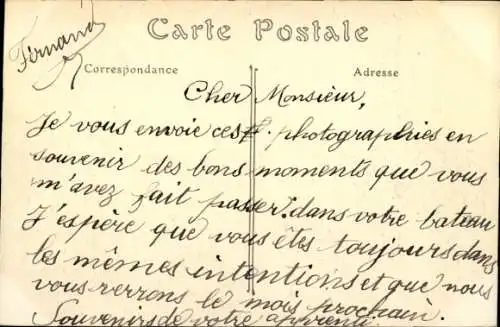 Fernand
Carte Postale
Correspondance
Adresse
Cher Monsieur,
Je vous envoie ces photographies en
souvenir des bons moments que vous
m'avez fait passer dans votre bateau
J'espère que vous êtes toujours dans
les mêmes intentions et que nous
vous verrons le mois prochain.
Souvenirs de votre apprenti